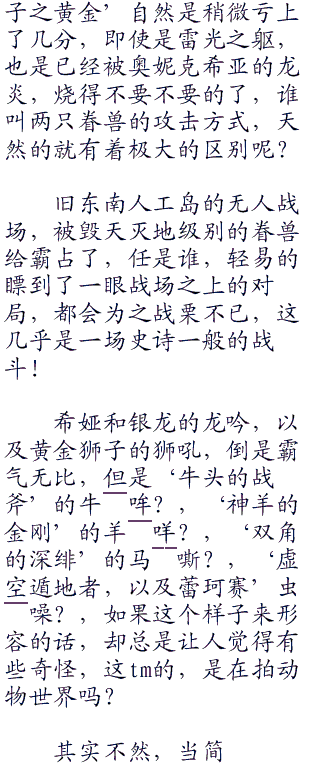 子之黄金’自然是稍微亏上
了几分，即使是雷光之躯，
也是已经被奥妮克希亚的龙
炎，烧得不要不要的了，谁
叫两只眷兽的攻击方式，天
然的就有着极大的区别呢？
旧东南人工岛的无人战
场，被毁天灭地级别的眷兽
给霸占了，任是谁，轻易的
瞟到了一眼战场之上的对
局，都会为之战栗不已，这
几乎是一场史诗一般的战
斗！
希娅和银龙的龙吟，以
及黄金狮子的狮吼，倒是霸
气无比，但是‘牛头的战
斧’的牛哞？，‘神羊的
金刚’的羊咩？，‘双角
的深绯’的马嘶？，‘虚
空遁地者，以及蕾珂赛’虫
噪？，如果这个样子来形
容的话，却总是让人觉得有
些奇怪，这tm的，是在拍动
物世界吗？
其实不然，当简